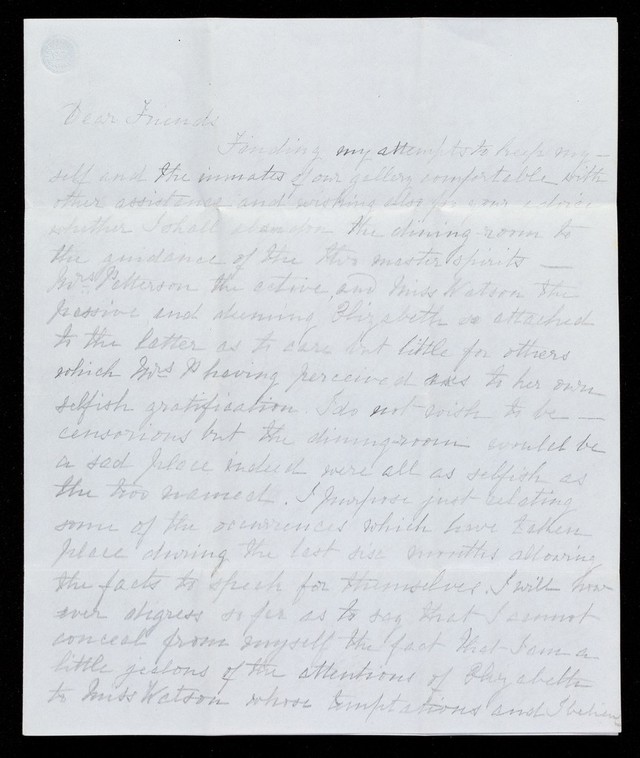 Dear Friends
Finding my attempts to keep my-
self and the inmates of our gallery comfortable with
other assistance and wishing also for your advice
whether I shall abandon the dining-room to
the guidance of the two master spirits —
Mrs Patterson the active, and Miss Watson the
passive and cunning, Elizabeth is attached
to the latter as to care but little for others
which Mrs P having perceived uses to her own
selfish gratification. I do not wish to be —
censorious but the dining-room would be
a sad place indeed were all as selfish as
the two named. I purpose just relating
some of the occurrences which have taken
place during the last six months allowing
the facts to speak for themselves. I will how-
ever digress so far as to say that I cannot
conceal from myself the fact that I am a
little jealous of the attentions of Elizabeth
to Miss Watson whose temptations and I believe